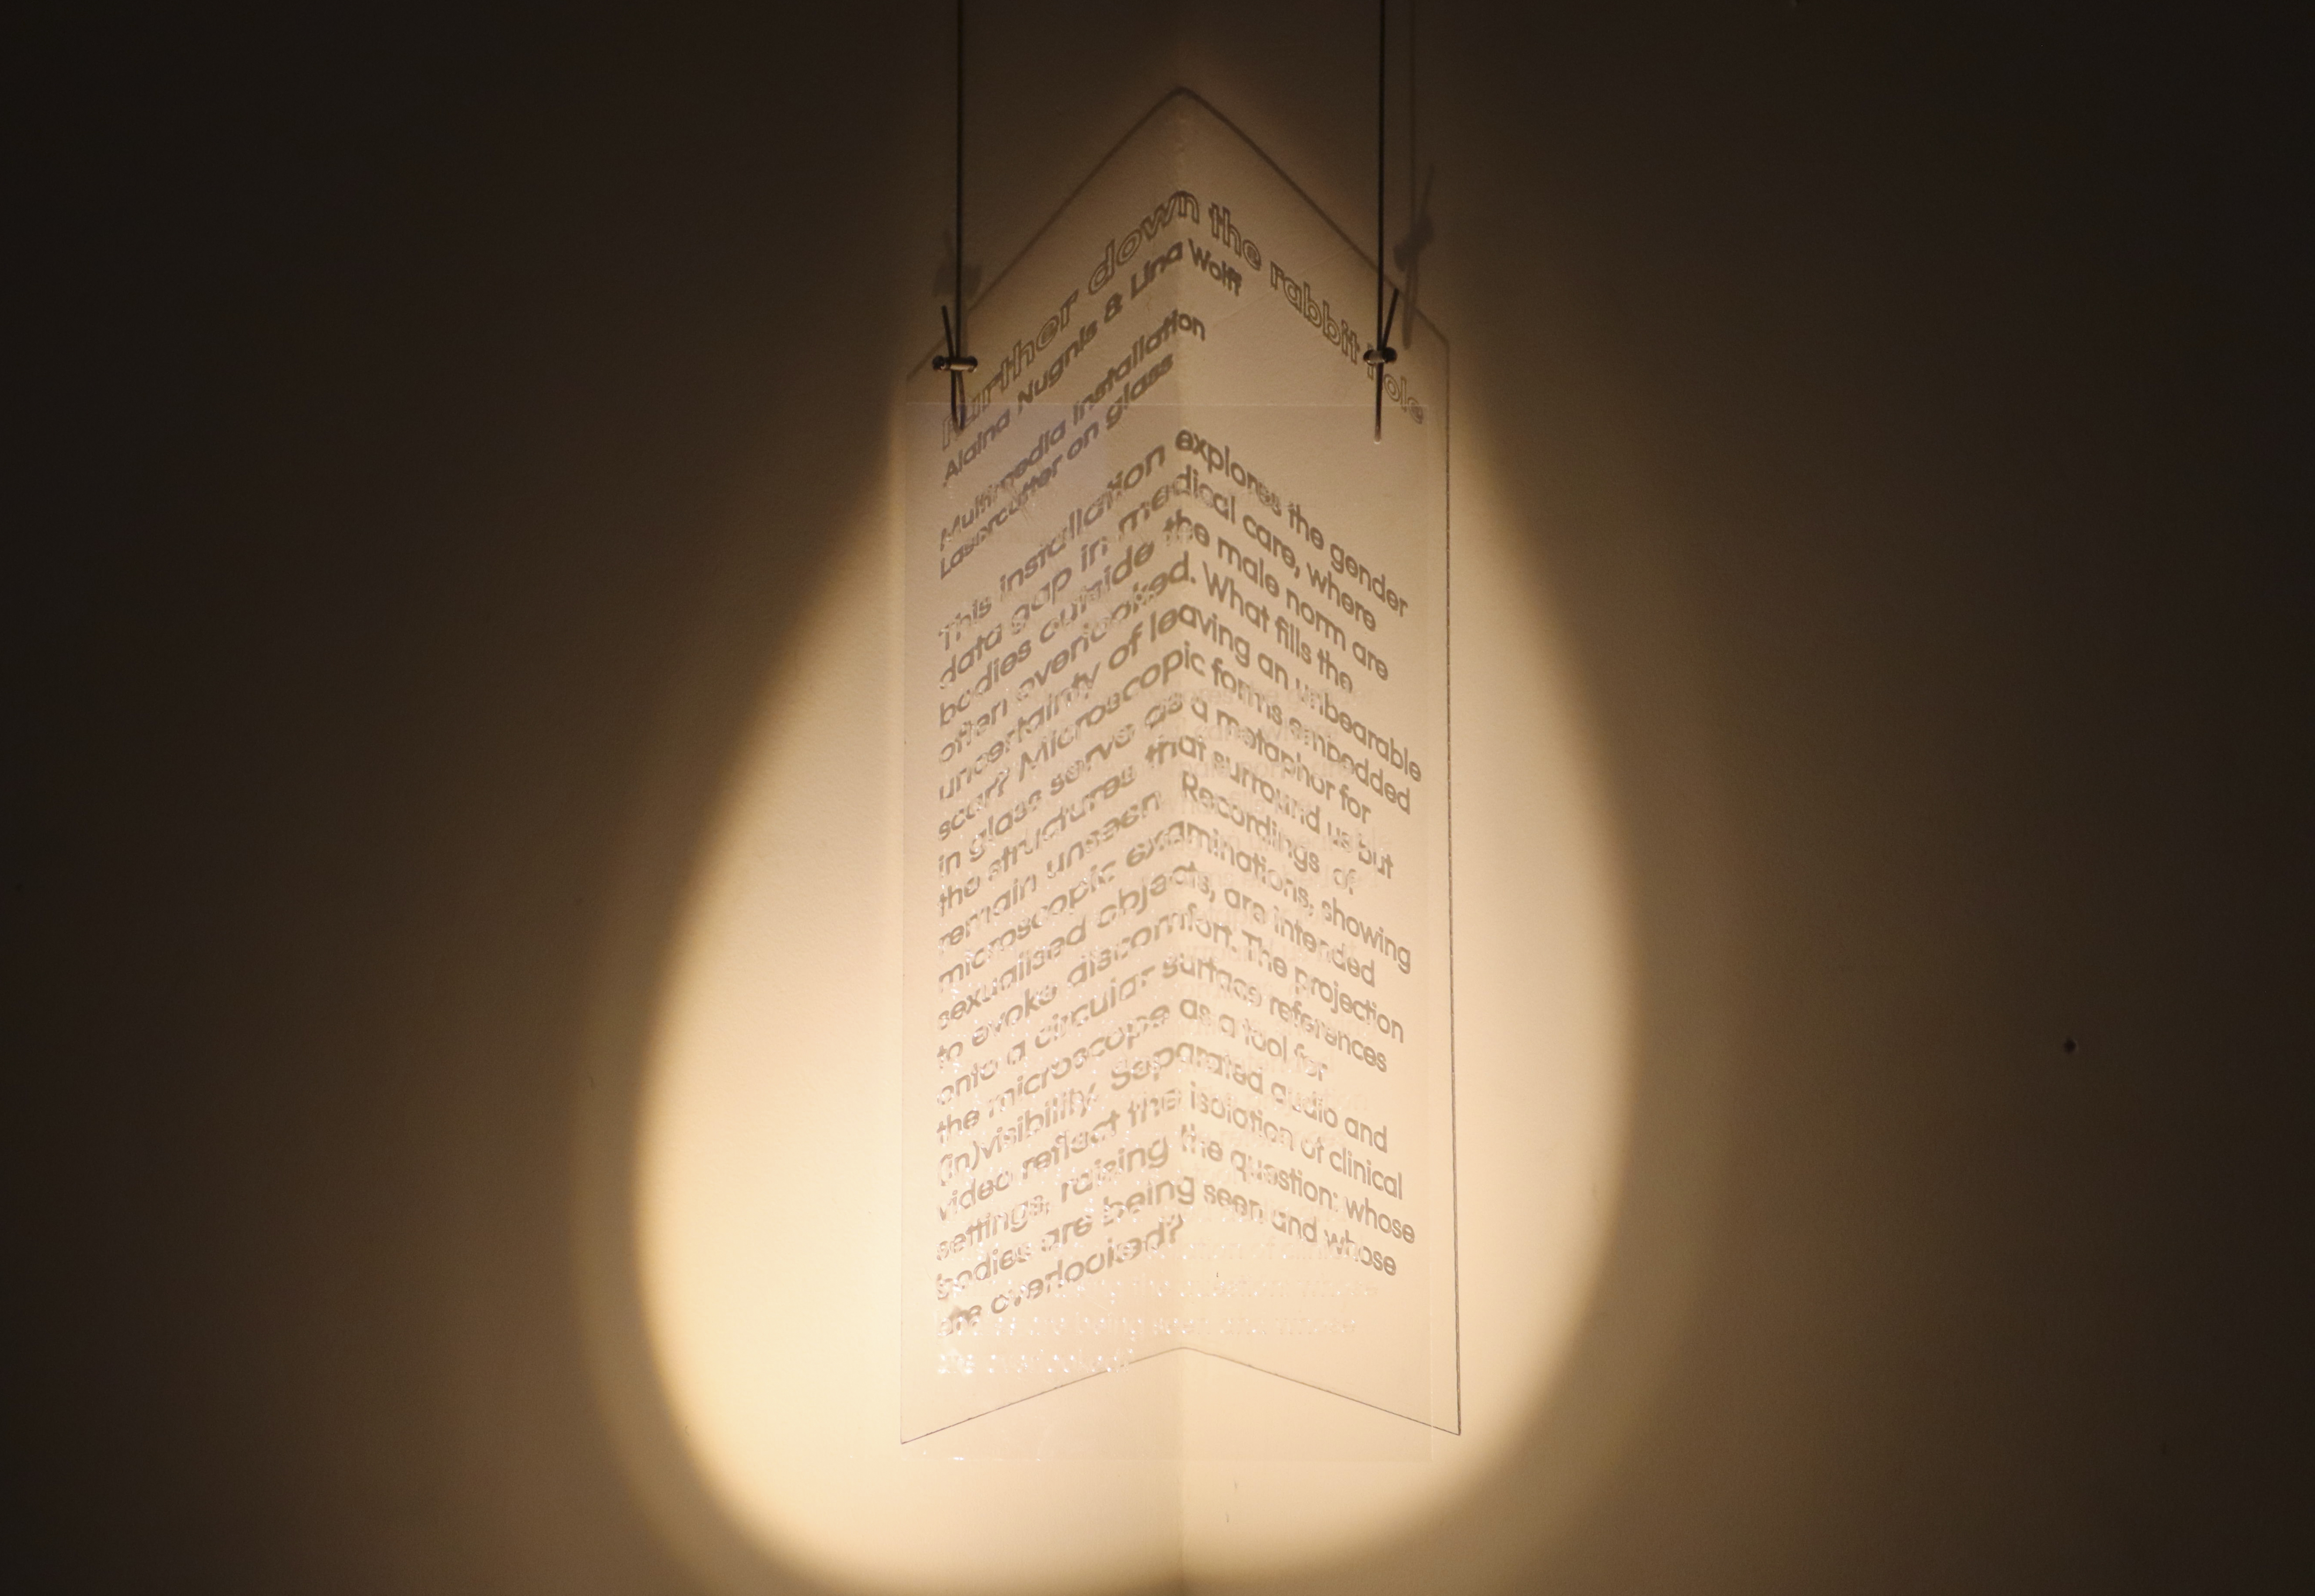 Further down the rabbit hole
Alaina Nugnis & Lina Wolff
Multimedia installation
Lasercutter on glass
This installation explores the gender
data gap in medical care, where
bodies outside the male norm are
often overlooked. What fills the
uncertainty of leaving an unbearable
scar? Microscopic forms embedded
in glass serve as a metaphor for
the structures that surround us but
remain unseen. Recordings of
microscopic examinations, showing
sexualised objects, are intended
to evoke discomfort. The projection
onto a circular surface references
the microscope as a tool for
(in)visibility. Separated audio and
video reflect the isolation of clinical
settings, raising the question: whose
bodies are being seen and whose
are overlooked?